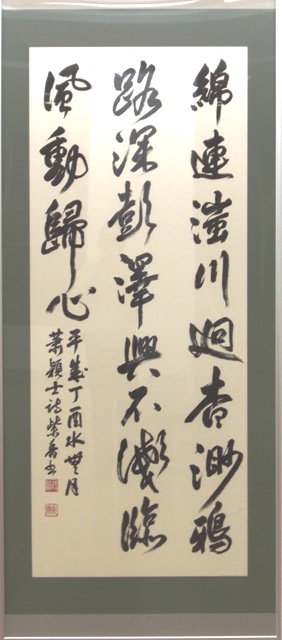 綿連滍川迴杳渺鴉
路深彭澤興不淺臨
風動歸心
平成丁酉水無月
蕭穎士詩紫香書